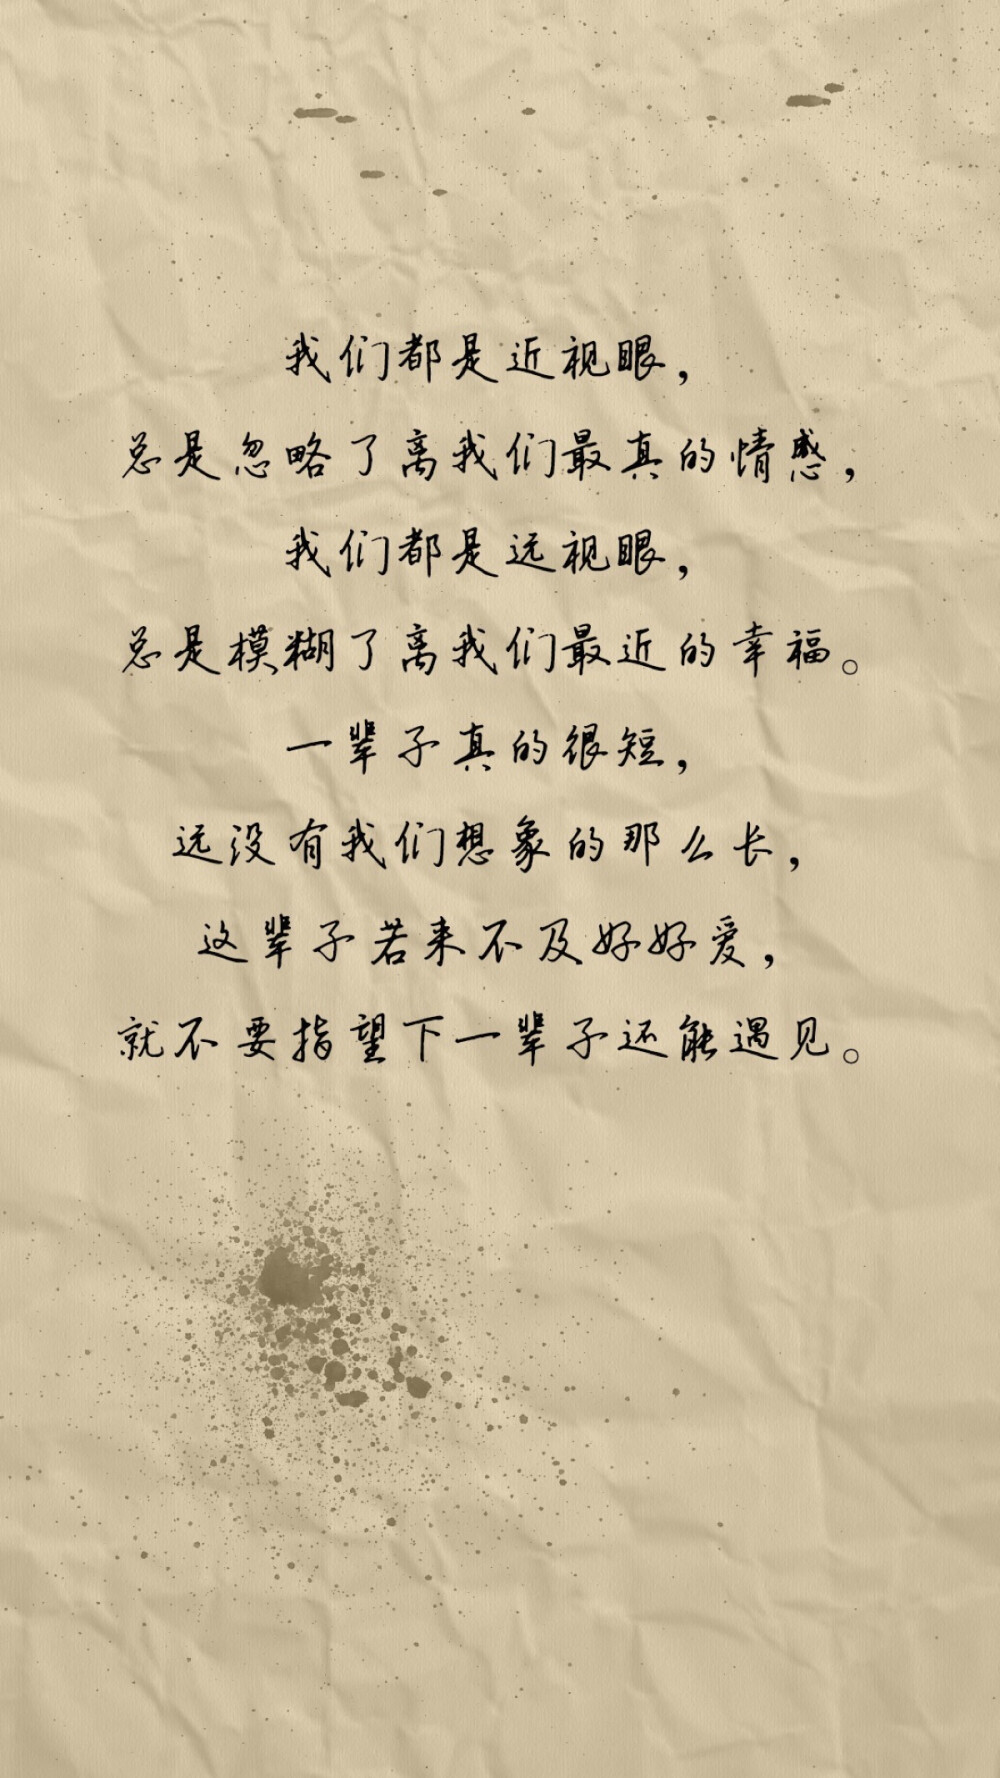 我们都是近视眼，
总是忽略了离我们最真的情感，
我们都是远视眼，
总是模糊了离我们最近的幸福。
一辈子真的很短，
远没有我们想象的那么长，
这辈子若来不及好好爱，
就不要指望下一辈子还能遇见。